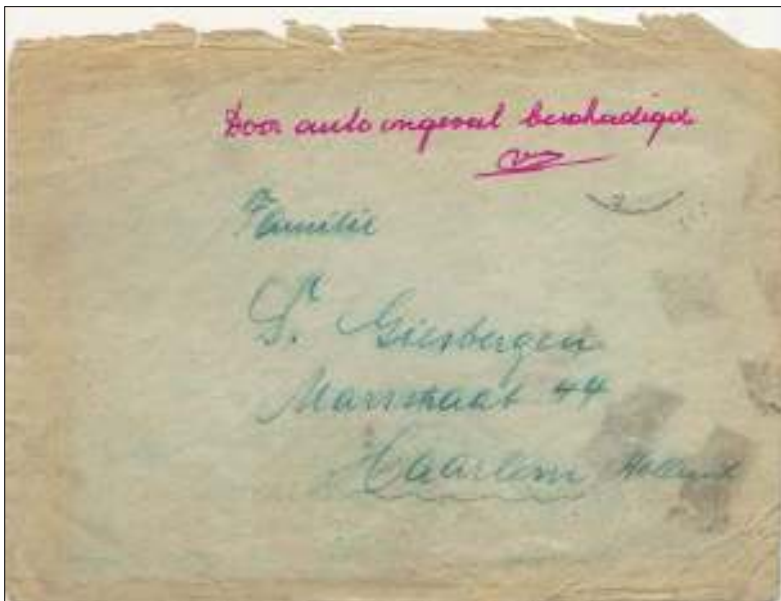 Door auto ongeval beschadigd
Familie
Giesbergen
Marsstraat 44
Haarlem Holland